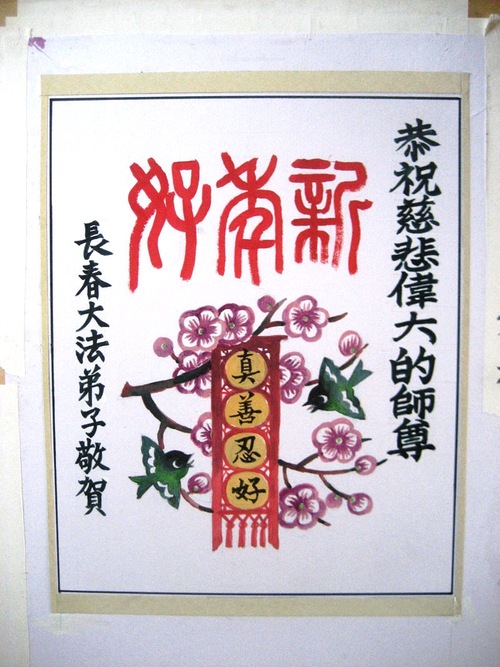 恭祝慈悲偉大的師尊
新年好
真善忍好
長春大法弟子敬賀